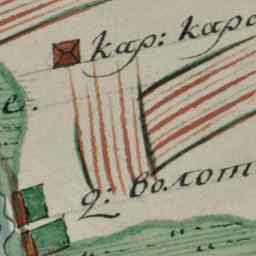 кар: кара
е.
2: волот